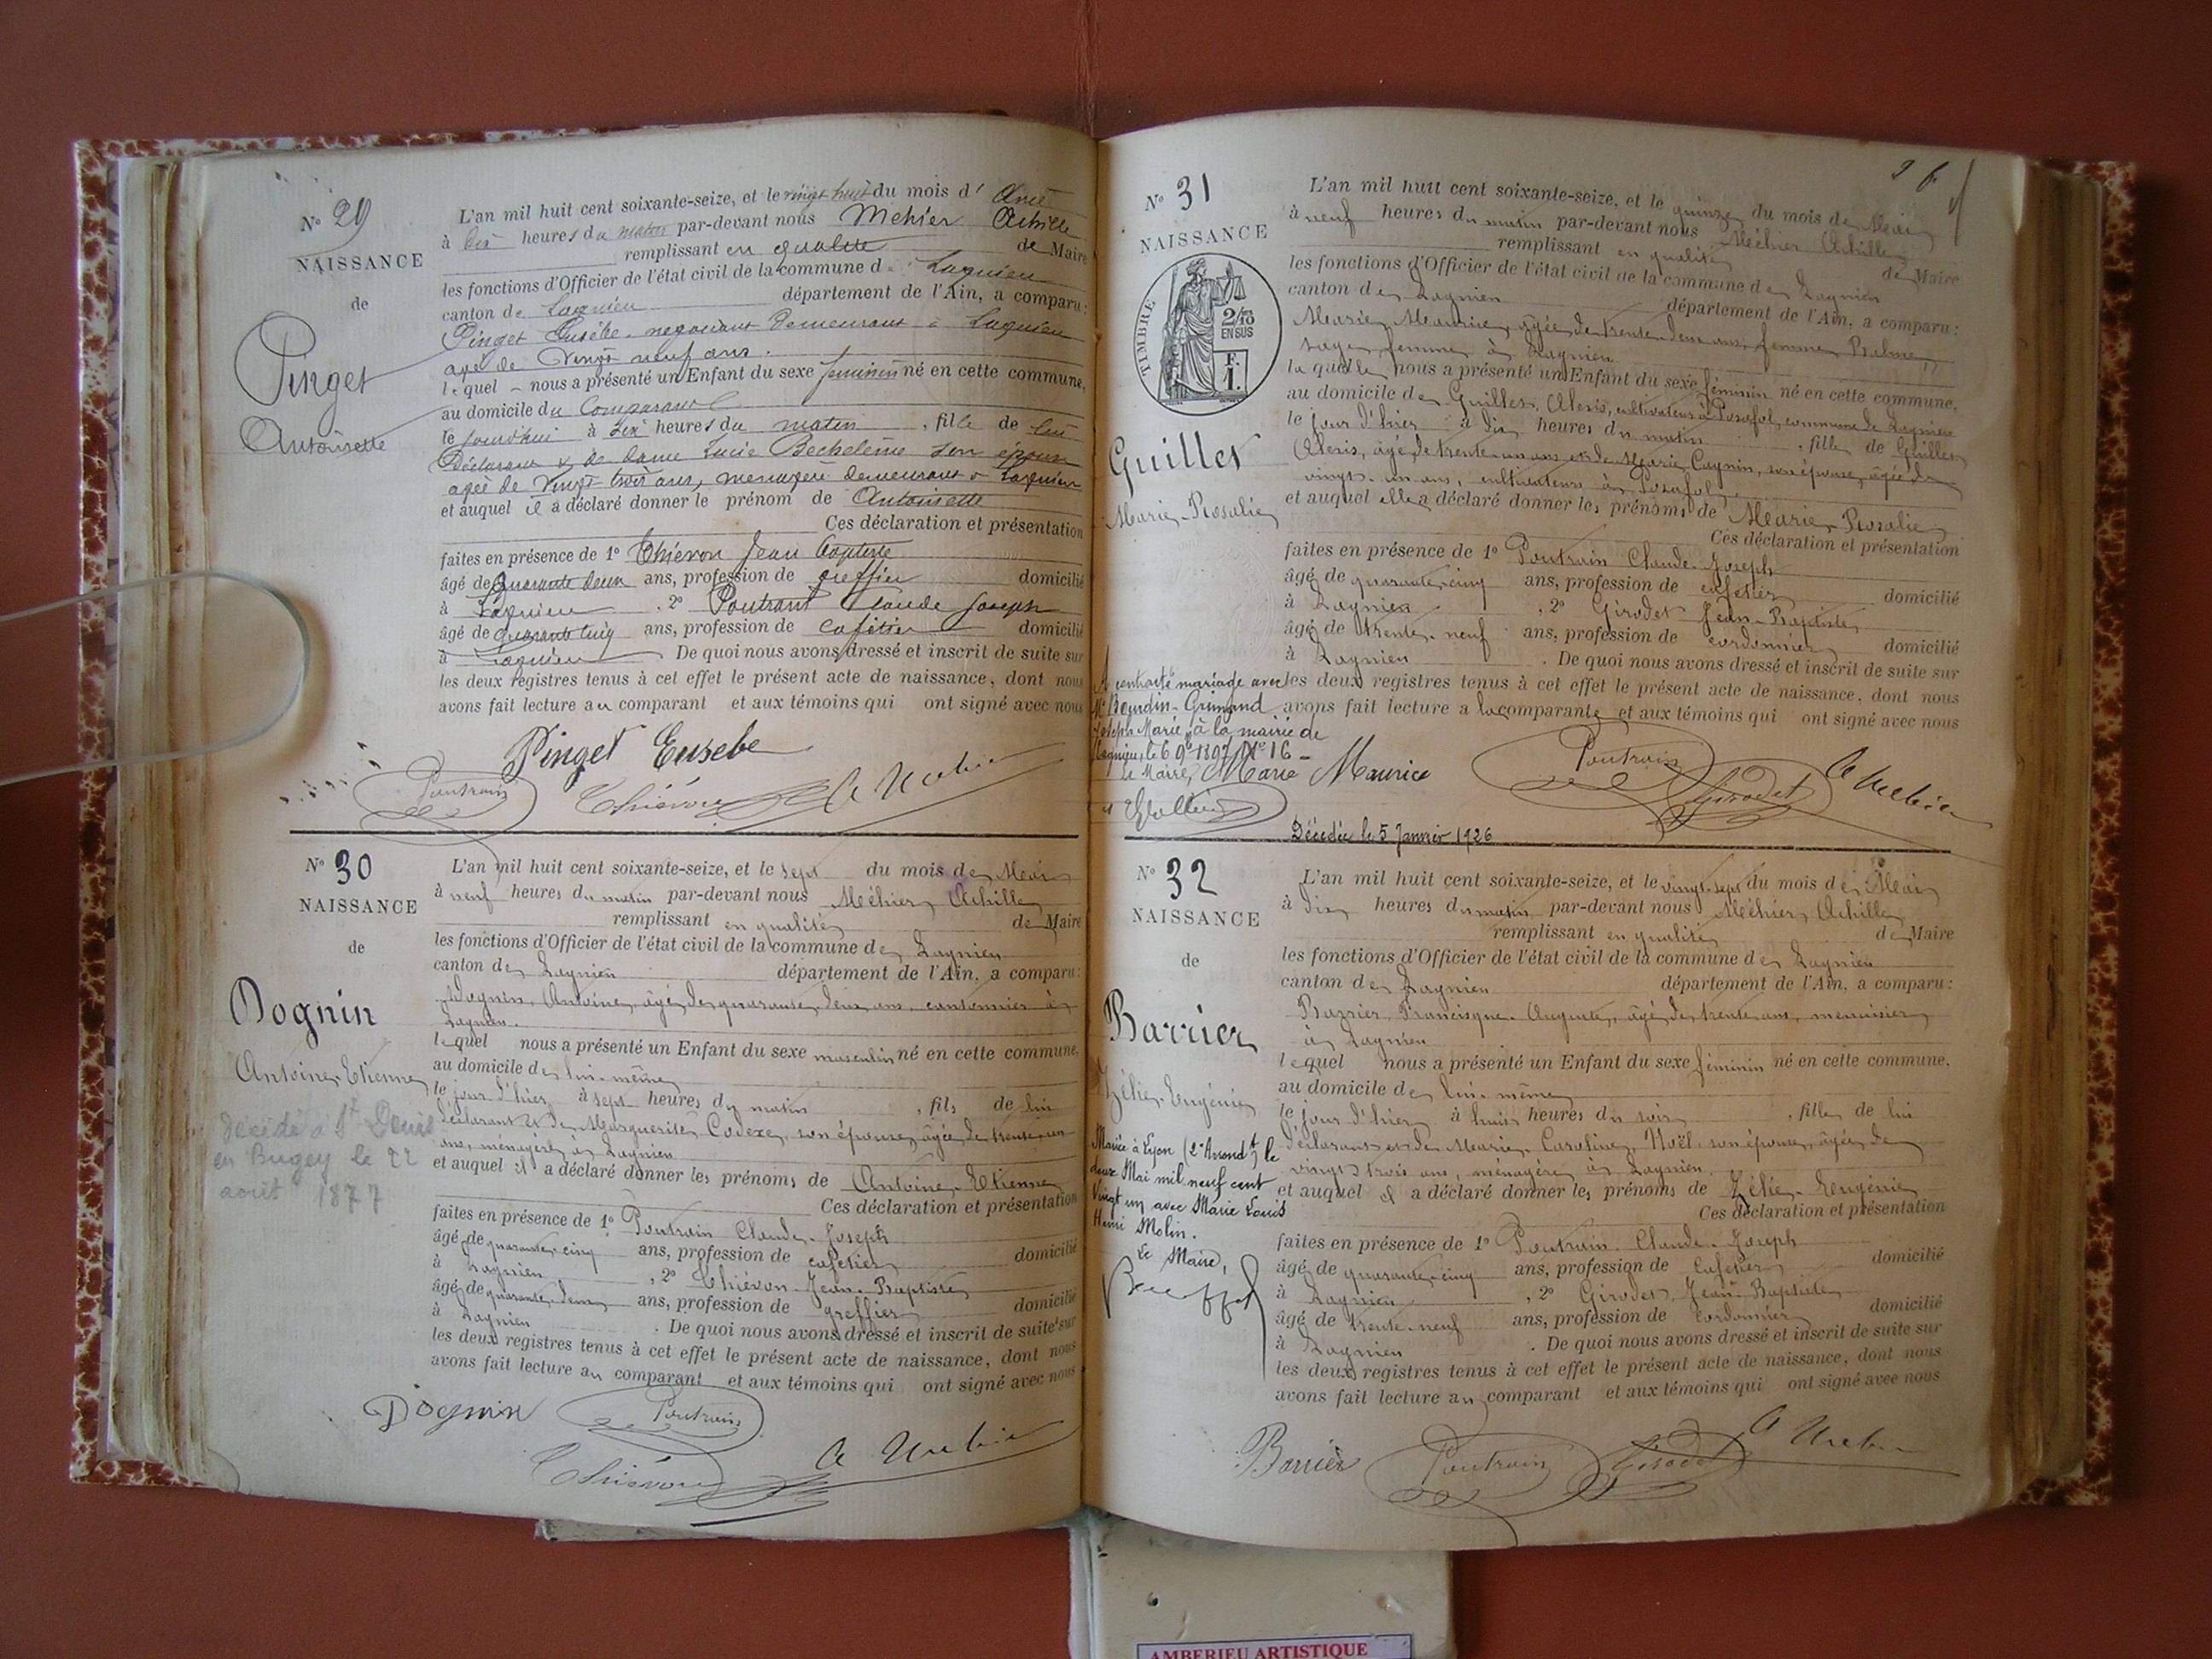 N° 29
NAISSANCE
de
Pinget
Antoinette
L'an mil huit cent soixante-seize, et le vingt huit du mois d' Avril
à dix heures du matin par-devant nous Mehier Achille
remplissant en qualité de Maire
les fonctions d'Officier de l'état civil de la commune de Lagnieu
canton de Lagnieu département de l'Ain, a comparu:
Pinget Eusèbe negociant demeurant à Lagnieu
agé de vingt neuf ans.
lequel nous a présenté un Enfant du sexe feminin né en cette commune,
au domicile du Comparant
le jourd'hui à six heures du matin, fille de lui
Déclarant & de dame Lucie Bechelème son épouse
agée de vingt trois ans, menagère demeurant à Lagnieu
et auquel il a déclaré donner le prénom de Antoinette
Ces déclaration et présentation
faites en présence de 1° Thiévon Jean Baptiste
âgé de quarante deux ans, profession de greffier domicilié
à Lagnieu, 2° Poutrain Claude Joseph
âgé de quarante cinq ans, profession de cafétier domicilié
à Lagnieu De quoi nous avons dressé et inscrit de suite sur
les deux registres tenus à cet effet le présent acte de naissance, dont nous
avons fait lecture au comparant et aux témoins qui ont signé avec nous
Pinget Eusebe
Poutrain Thiévon A Mehier
N° 30
NAISSANCE
de
Dognin
Antoine-Etienne
Décédé à St Denis
en Bugey le 22
août 1877
L'an mil huit cent soixante-seize, et le sept du mois de Mai
à neuf heures du matin par-devant nous Méhier, Achille
remplissant en qualité de Maire
les fonctions d'Officier de l'état civil de la commune de Lagnieu
canton de Lagnieu département de l'Ain, a comparu:
Dognin, Antoine, âgé de quarante deux ans, cantonnier à
Lagnieu.
lequel nous a présenté un Enfant du sexe masculin né en cette commune,
au domicile de lui-même
le jour d'hier à sept heures du matin, fils de lui
déclarant et de Marguerite Codex, son épouse, âgée de trente-un
ans, ménagère à Lagnieu
et auquel il a déclaré donner les prénoms de Antoine-Etienne
Ces déclaration et présentation
faites en présence de 1° Poutrain Claude-Joseph
âgé de quarante-cinq ans, profession de cafetier domicilié
à Lagnieu, 2° Thiévon Jean-Baptiste
âgé de quarante-deux ans, profession de greffier domicilié
à Lagnieu. De quoi nous avons dressé et inscrit de suite sur
les deux registres tenus à cet effet le présent acte de naissance, dont nous
avons fait lecture au comparant et aux témoins qui ont signé avec nous
Dognin Poutrain
Thiévon A Mehier
26
N° 31
NAISSANCE
TIMBRE
2/10
EN SUS
F.
1.
Guillet
Marie-Rosalie
A contracté mariage avec
Mr Bourdin-Grimaud
Joseph Marie, à la mairie de
Lagnieu, le 6 9e 1897 N° 16 -
Le Maire,
L'an mil huit cent soixante-seize, et le quinze du mois de Mai
à neuf heures du matin par-devant nous Méhier Achille
remplissant en qualité de Maire
les fonctions d'Officier de l'état civil de la commune de Lagnieu
canton de Lagnieu département de l'Ain, a comparu:
Marie, Maurice, âgée de trente-deux ans, femme Balme,
sage-femme à Lagnieu
laquelle nous a présenté un Enfant du sexe féminin né en cette commune,
au domicile de Guillet, Alexis, cultivateur à Posafol, commune de Lagnieu
le jour d'hier à dix heures du matin, fille de Guillet
Alexis, âgé de trente-un ans et de Marie Cagnin, son épouse, âgée de
vingt-un ans, cultivateurs à Posafol.
et auquel elle a déclaré donner les prénoms de Marie-Rosalie
Ces déclaration et présentation
faites en présence de 1° Poutrain Claude-Joseph
âgé de quarante-cinq ans, profession de cafetier domicilié
à Lagnieu, 2° Girodet Jean-Baptiste
âgé de trente-neuf ans, profession de cordonnier domicilié
à Lagnieu. De quoi nous avons dressé et inscrit de suite sur
les deux registres tenus à cet effet le présent acte de naissance, dont nous
avons fait lecture a la comparante et aux témoins qui ont signé avec nous
Marie Maurice Poutrain Girodet A Mehier
Décédée le 5 Janvier 1926
N° 32
NAISSANCE
de
Barrier
Zélie-Eugénie
Mariée à Lyon (2e Arrondt) le
deux Mai mil neuf cent
vingt un avec Marie Louis
Henri Molin.
Le Maire,
L'an mil huit cent soixante-seize, et le vingt-sept du mois de Mai
à dix heures du matin par-devant nous Méhier, Achille
remplissant en qualité de Maire
les fonctions d'Officier de l'état civil de la commune de Lagnieu
canton de Lagnieu département de l'Ain, a comparu:
Barrier, Francisque-Auguste, âgé de trente ans, menuisier
à Lagnieu
lequel nous a présenté un Enfant du sexe féminin né en cette commune,
au domicile de lui-même
le jour d'hier à huit heures du soir, fille de lui
déclarant et de Marie Caroline Noël son épouse, âgée de
vingt-trois ans, ménagère à Lagnieu
et auquel il a déclaré donner les prénoms de Zélie-Eugénie
Ces déclaration et présentation
faites en présence de 1° Poutrain Claude-Joseph
âgé de quarante-cinq ans, profession de cafetier domicilié
à Lagnieu, 2° Girodet, Jean-Baptiste
âgé de trente-neuf ans, profession de cordonnier domicilié
à Lagnieu. De quoi nous avons dressé et inscrit de suite sur
les deux registres tenus à cet effet le présent acte de naissance, dont nous
avons fait lecture au comparant et aux témoins qui ont signé avec nous
Barrier Poutrain Girodet A Mehier
AMBERIEU ARTISTIQUE